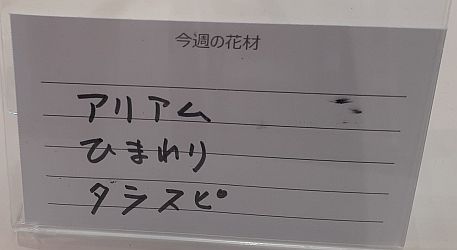 今週の花材
アリアム
ひまわり
タラスピ